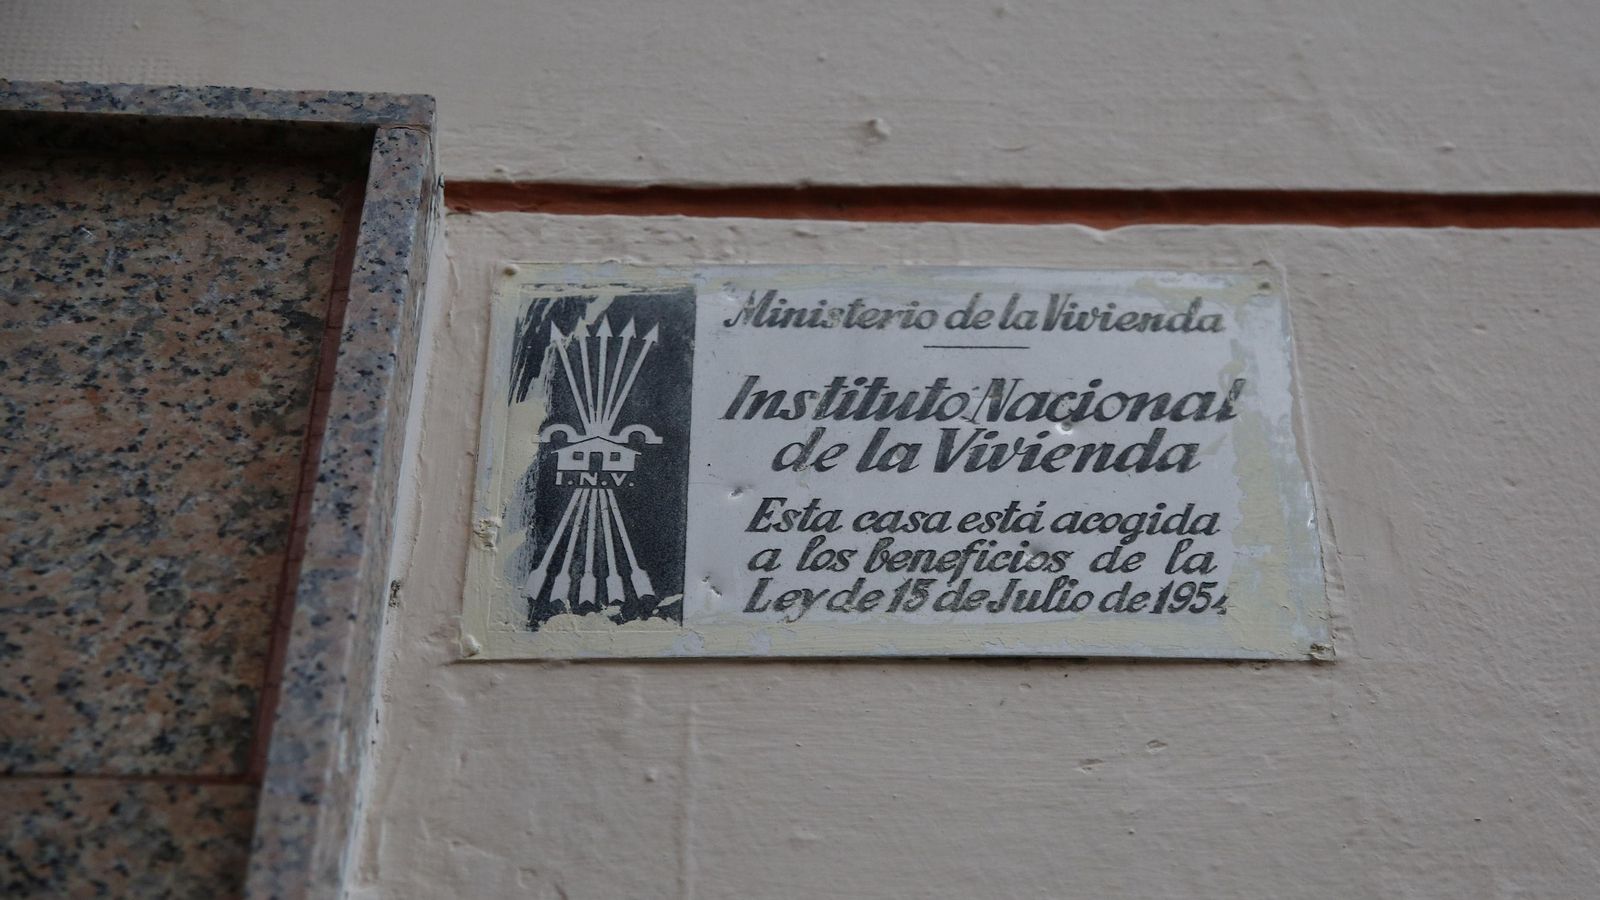 Ministerio de la Vivienda
Instituto Nacional
de la Vivienda
I.N.V.
Esta casa está acogida
a los beneficios de la
Ley de 15 de Julio de 1954